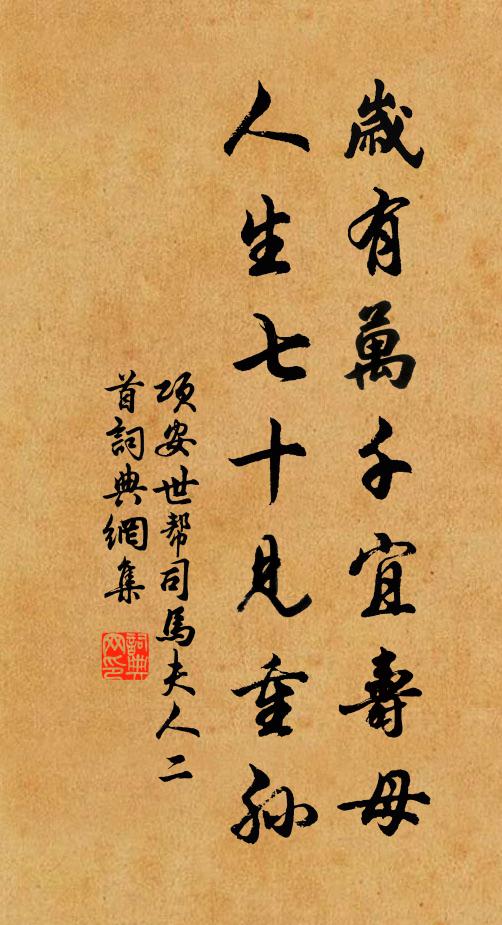 歲有萬千宜壽母
人生七十見重孙
项安世帮司馬夫人二
首詞典網集
詞典網印